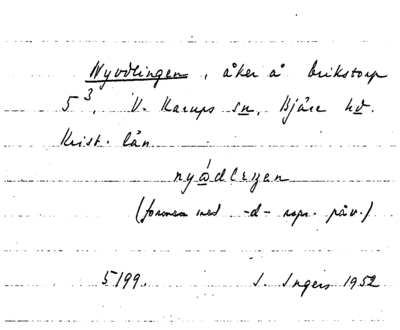 Nyodlingen, åker å Erikstorp
5³, V. Karups sn, Bjäre hd.
Krist. län
nyødleŋen
(formen med -d- rspr. påv.)
5199. I. Ingers 1952